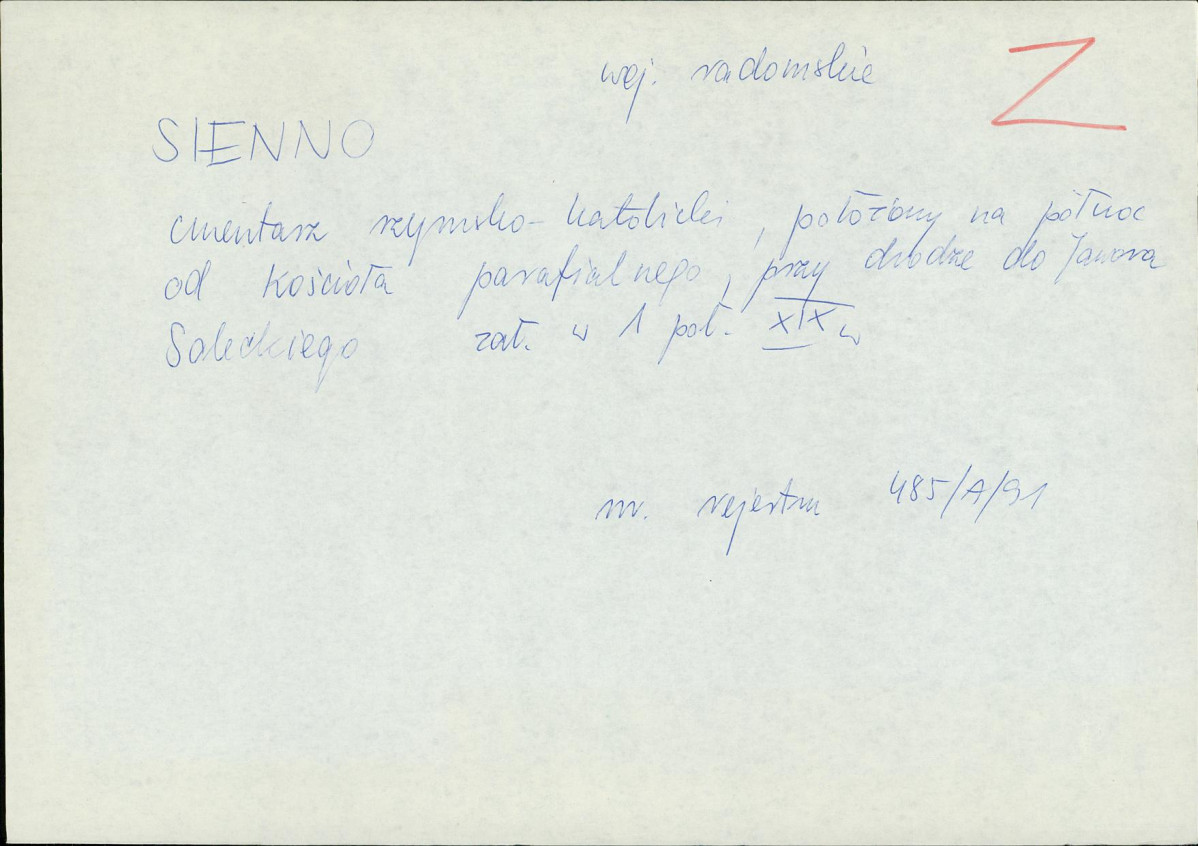 woj. radomskie
Z
SIENNO
cmentarz rzymsko-katolicki, położony na północ
od kościoła parafialnego, przy drodze do Jawora
Soleckiego zał. w 1 poł. XIX w
nr. rejestru 485/A/91